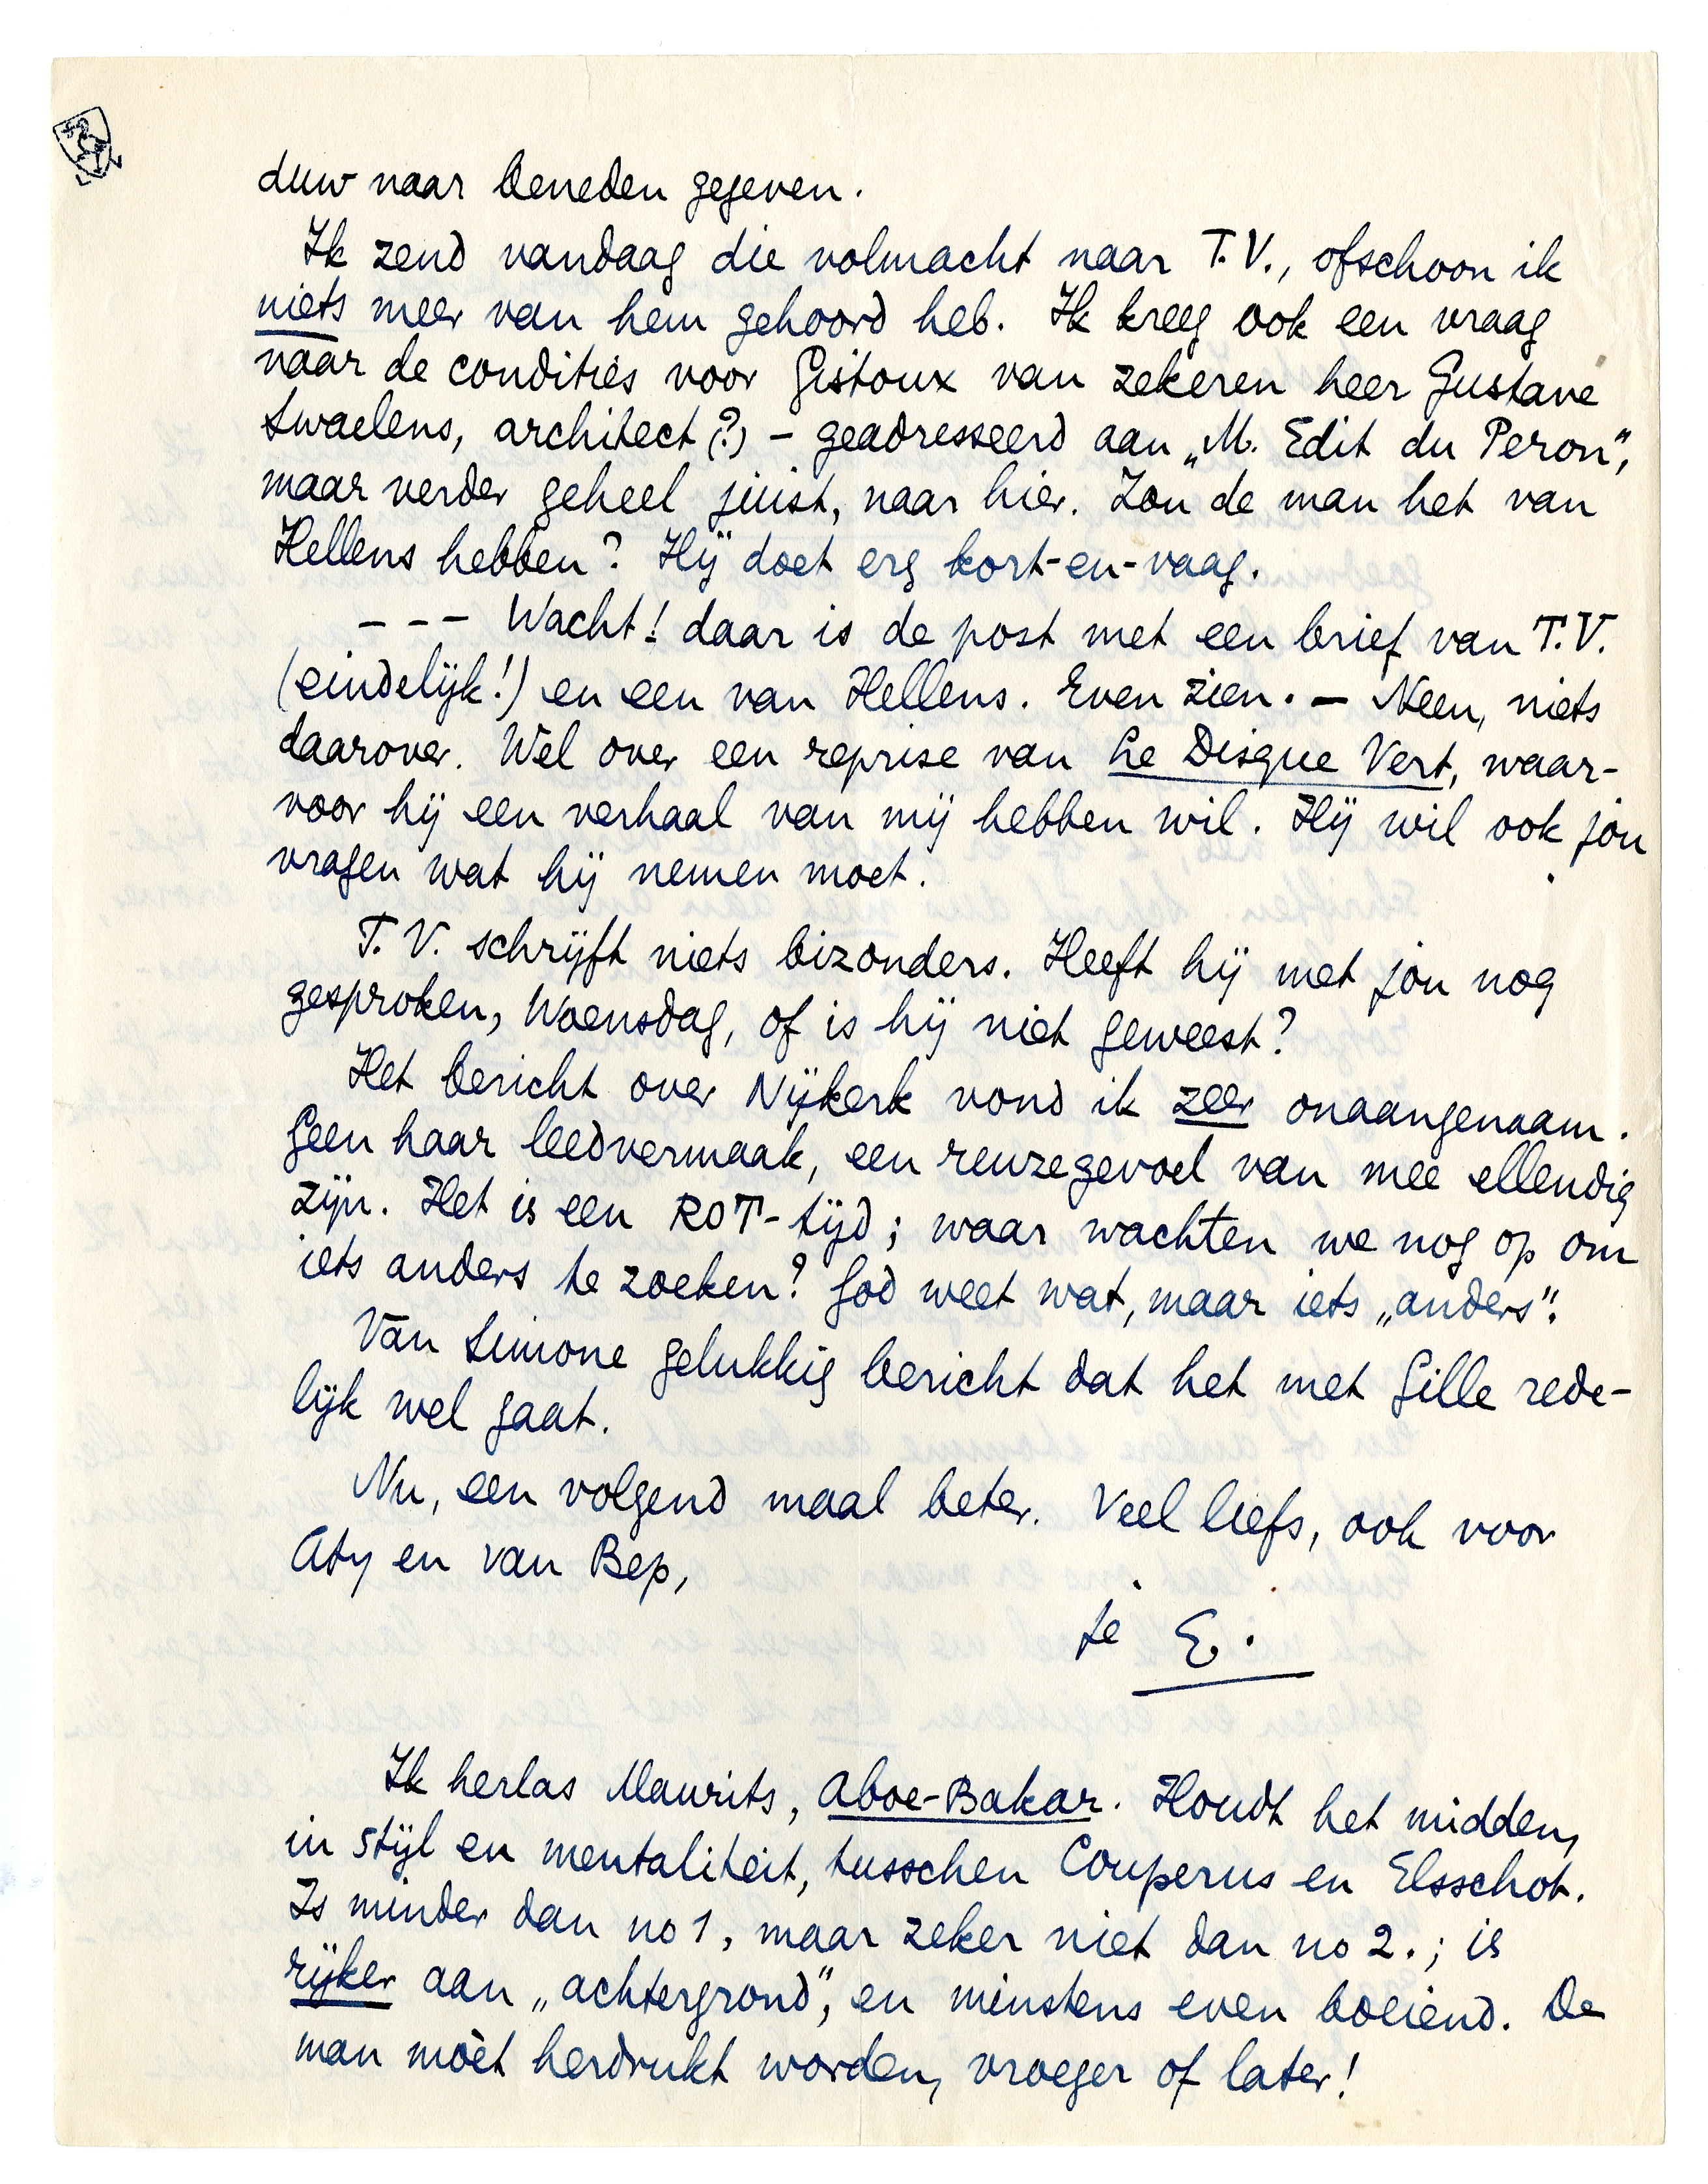 duw naar beneden gegeven.
Ik zend vandaag die volmacht naar T.V., ofschoon ik
niets meer van hem gehoord heb. Ik kreeg ook een vraag
naar de condities voor Gistoux van zekeren heer Gustave
Swaelens, architect (?) – geadresseerd aan „M. Edit du Peron",
maar verder geheel juist, naar hier. Zou de man het van
Hellens hebben? Hij doet erg kort-en-vaag.
– – – Wacht! daar is de post met een brief van T.V.
(eindelijk!) en een van Hellens. Even zien. – Neen, niets
daarover. Wel over een reprise van Le Disque Vert, waar-
voor hij een verhaal van mij hebben wil. Hij wil ook jou
vragen wat hij nemen moet.
T.V. schrijft niets bizonders. Heeft hij met jou nog
gesproken, Woensdag, of is hij niet geweest?
Het bericht over Nijkerk vond ik zeer onaangenaam.
Geen haar leedvermaak, een reuzegevoel van mee ellendig
zijn. Het is een ROT-tijd; waar wachten we nog op om
iets anders te zoeken? God weet wat, maar iets „anders".
Van Simone gelukkig bericht dat het met Gille rede-
lijk wel gaat.
Nu, een volgend maal beter. Veel liefs, ook voor
Aty en van Bep,
je E.
Ik herlas Maurits, Aboe-Bakar. Houdt het midden,
in stijl en mentaliteit, tusschen Couperus en Elsschot.
Is minder dan no 1, maar zeker niet dan no 2.; is
rijker aan „achtergrond", en minstens even boeiend. De
man mòèt herdrukt worden, vroeger of later!